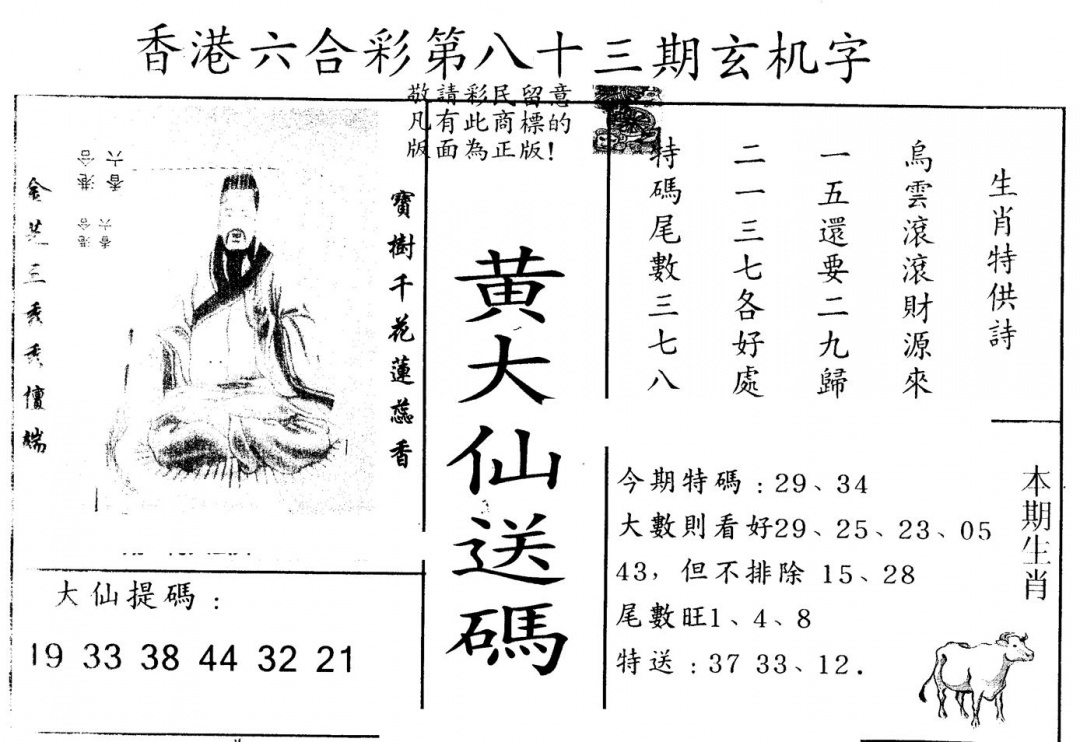 香港六合彩第八十三期玄机字
敬請彩民留意
凡有此商標的
版面為正版!
寶樹千花蓮蕊香
黄大仙送碼
生肖特供詩
烏雲滾滾財源來
一五還要二九歸
二一三七各好處
特碼尾數三七八
今期特碼:29、34
大數則看好29、25、23、05
43,但不排除 15、28
尾數旺1、4、8
特送:37 33、12.
本期生肖
大仙提碼:
19 33 38 44 32 21